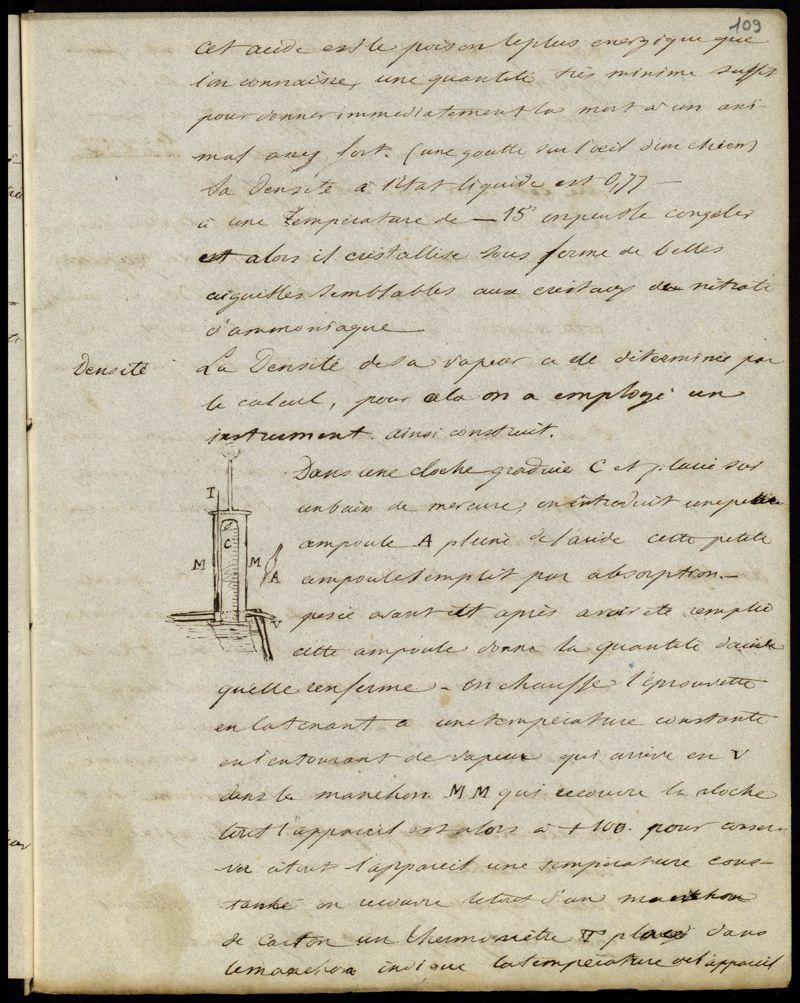 109
cet acide est le poison le plus energique que
l'on connaisse, une quantité très minime suffit
pour donner immediatement la mort à un ani-
mal assez fort. (une goutte sur l'oeil d'un chien)
Sa Densité à l'Etat liquide est 0,77 —
à une Température de — 15° on peut le congeler
et alors il cristallise sous forme de belles
aiguilles semblables aux cristaux du nitrate
d'ammoniaque
Densité
La Densité de sa vapeur a été déterminée par
le calcul, pour cela on a employé un
instrument ainsi construit.
Dans une cloche graduée C et placée sur
un bain de mercure, on introduit une petite
ampoule A pleine de l'acide cette petite
ampoule s'emplit par absorption —
pesée avant et après avoir été remplie
cette ampoule donne la quantité d'acide
qu'elle renferme — on chauffe l'éprouvette
en la tenant a une température constante
en l'entourant de vapeur qui arrive en V
dans le manchon M M qui recouvre la cloche
tout l'appareil est alors à + 100. pour conser-
ver à tout l'appareil une température cons-
tante on recouvre le tout d'un manchon
de carton un thermomètre T placé dans
le manchon indique la température de l'appareil
I
C
M
M
A
V